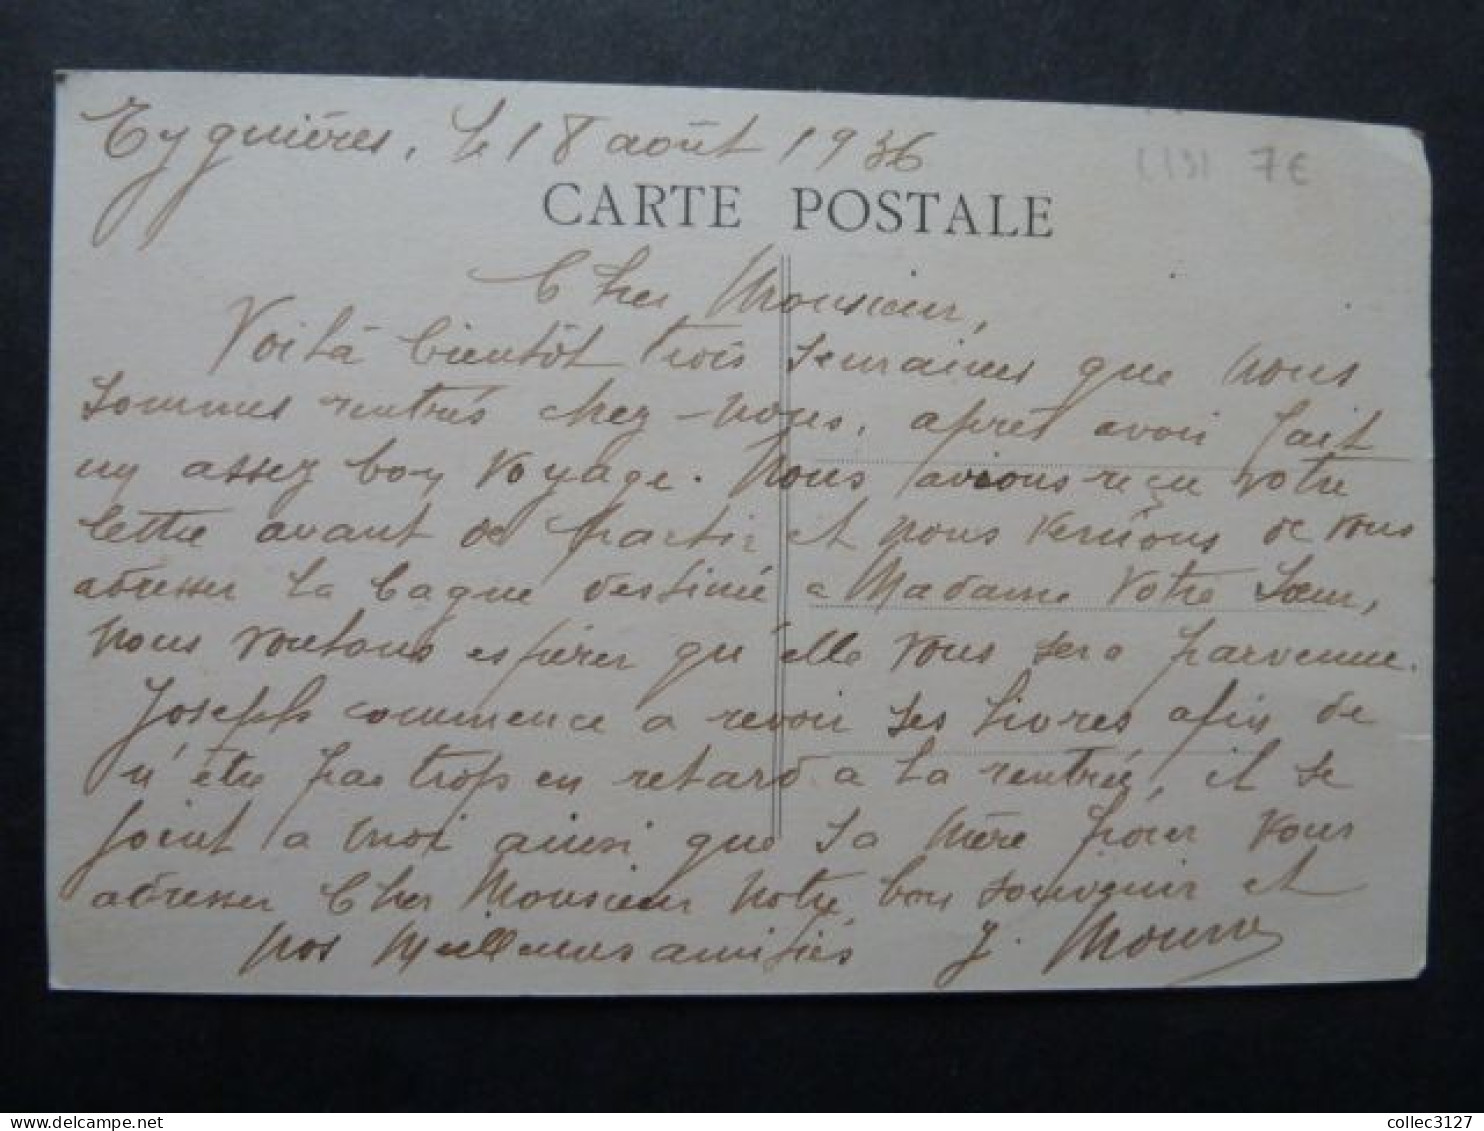 Eyguières, le 18 août 1936
7€
CARTE POSTALE
Cher Monsieur,
Voilà bientôt trois semaines que nous
sommes rentrés chez-nous, après avoir fait
un assez bon voyage. Nous avions reçu votre
lettre avant de partir et nous venions de vous
adresser la bague destiné a Madame Votre Sœur,
nous voulons espérer qu'elle vous sera parvenue.
Joseph commence a revoir ses livres afin de
n'être pas trop en retard a la rentrée, il se
joint a moi ainsi que sa Mère pour vous
adresser Cher Monsieur notre bon souvenir et
nos Meilleures amitiés J.
delcampe.net
collec3127